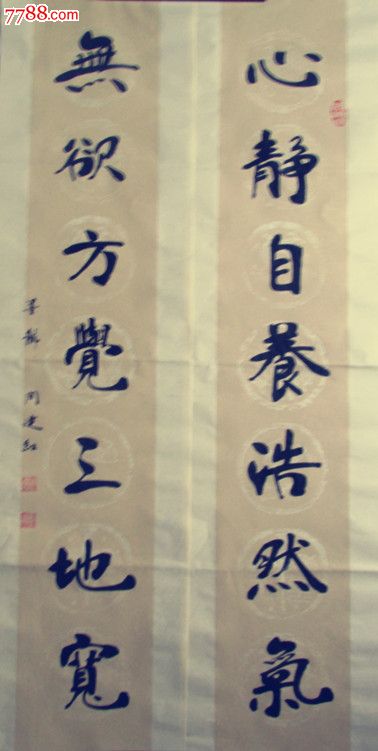 7788.com
心静自養浩然氣
無欲方覺三地寬